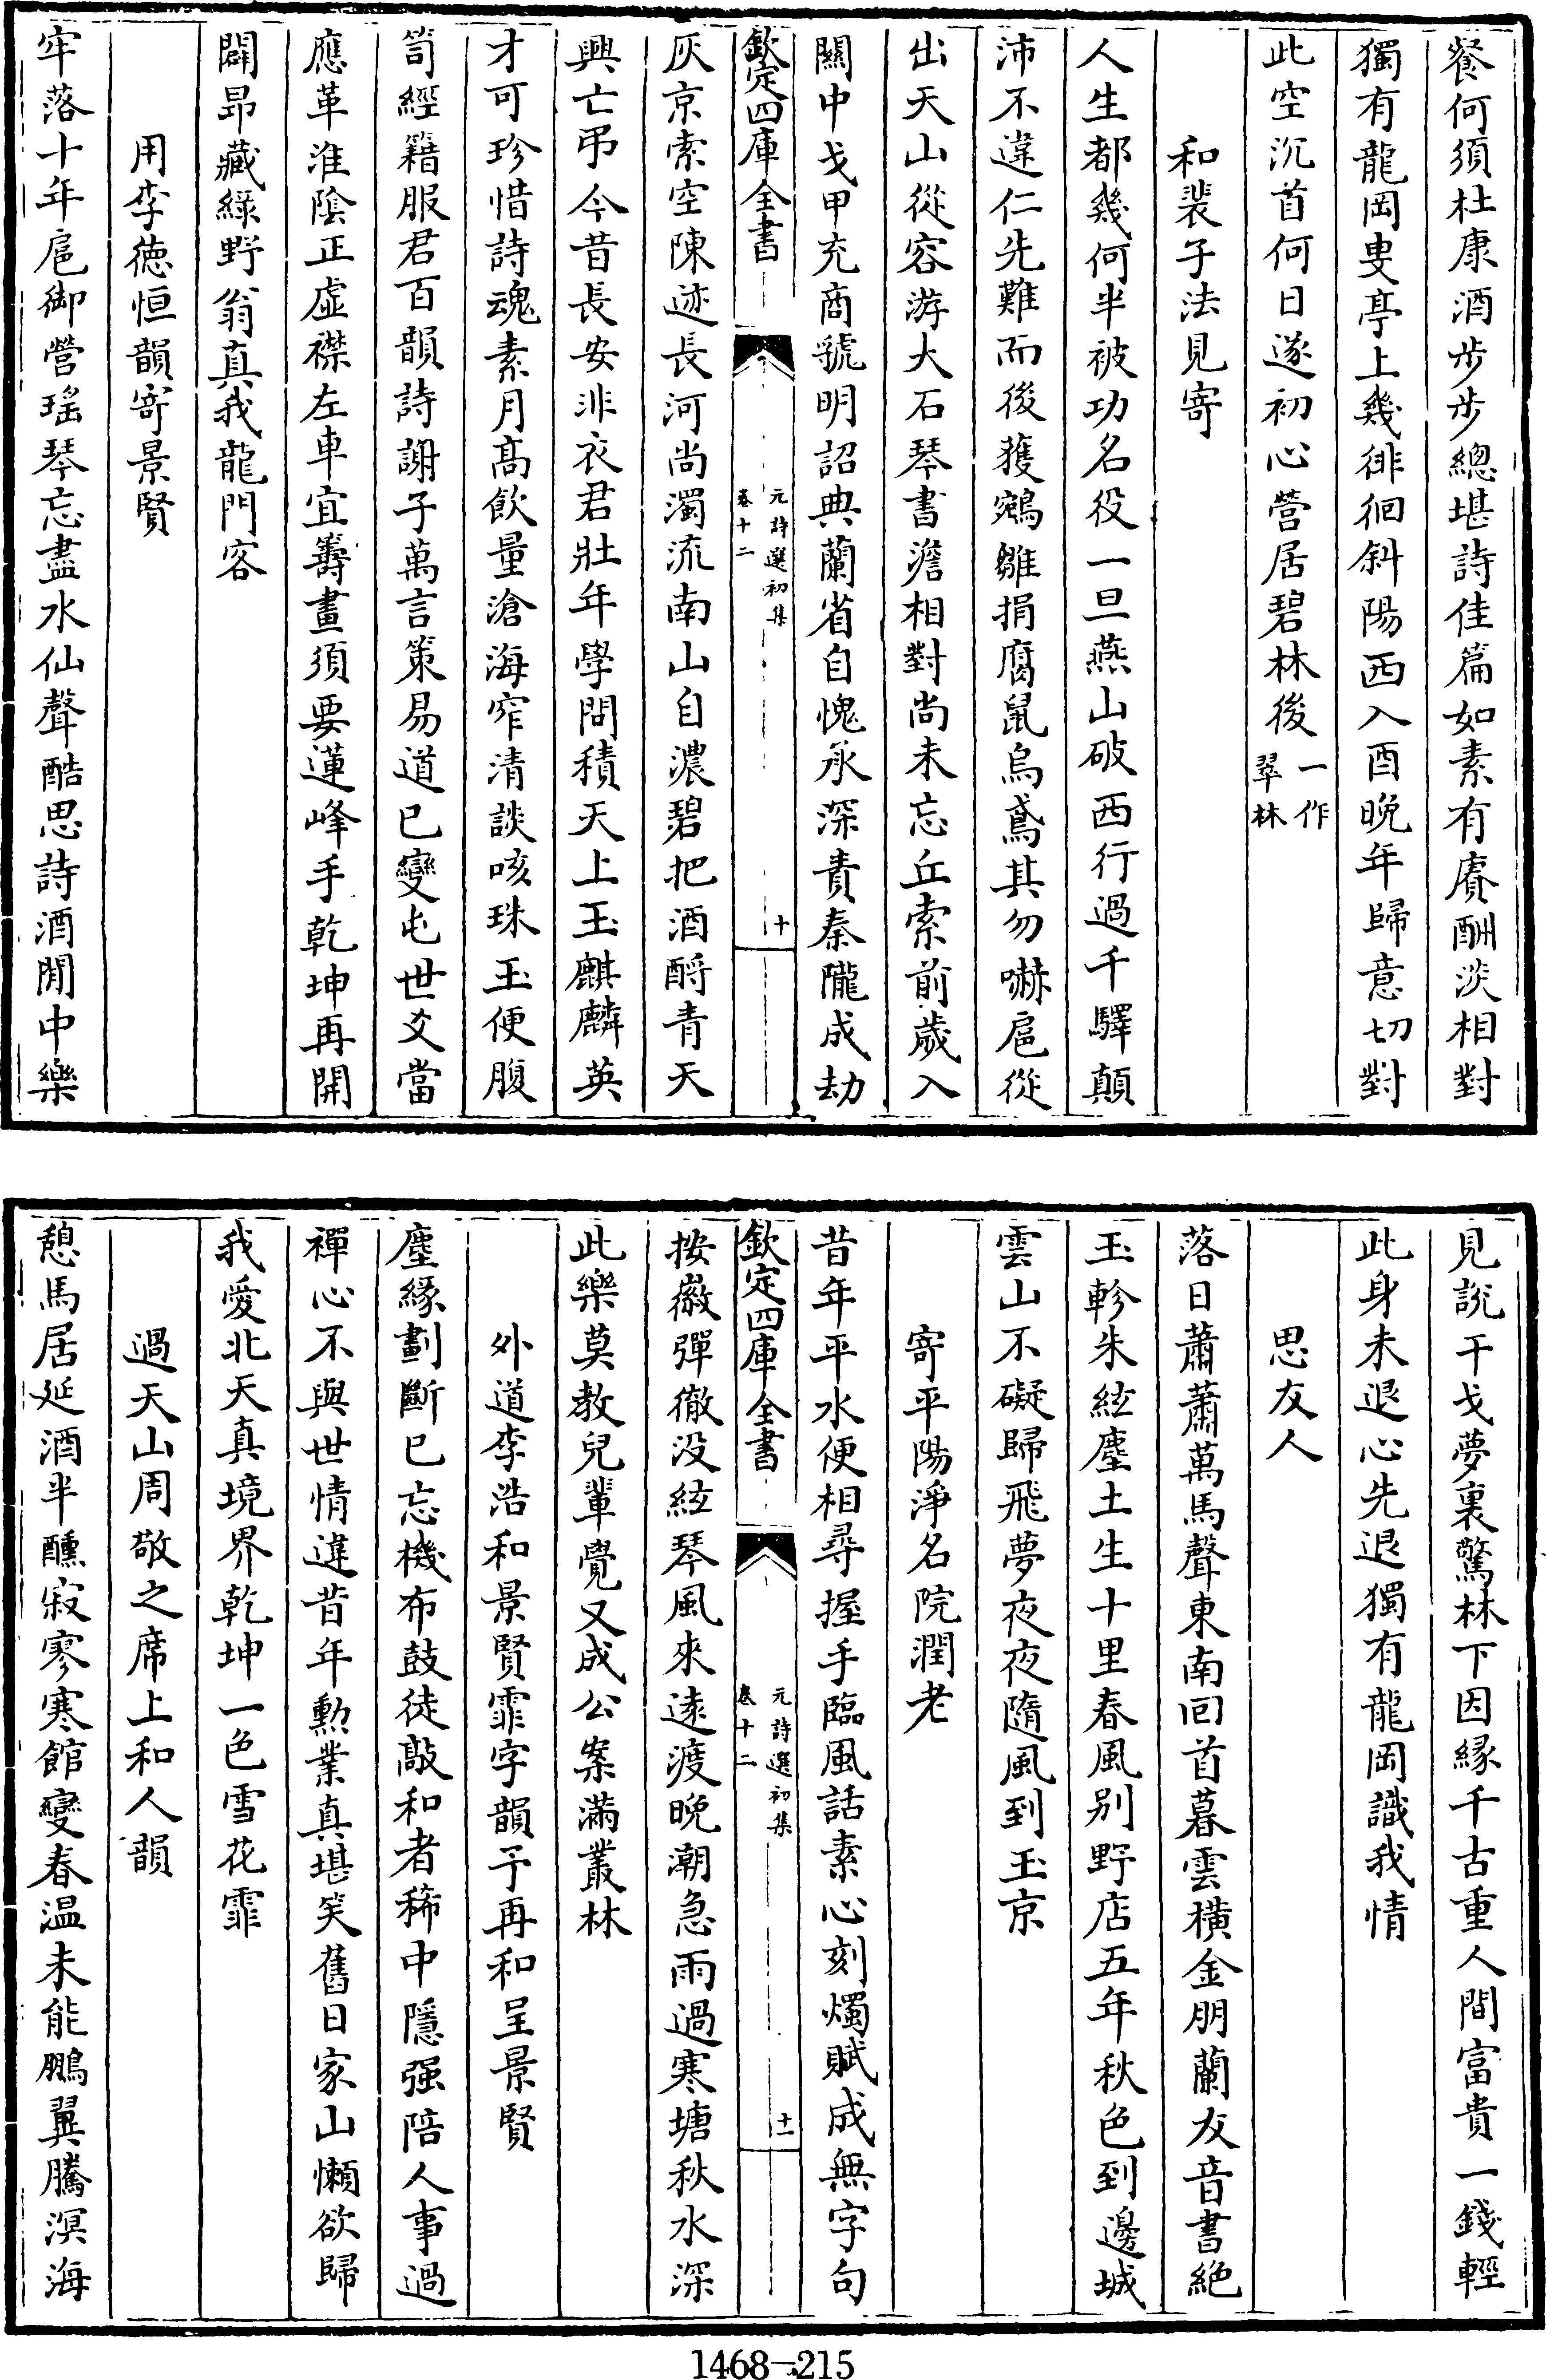 餐何須杜康酒步步總堪詩佳篇如素有賡酬淡相對
獨有龍岡叟亭上幾徘徊斜陽西入酉晚年歸意切對
此空沉首何日遂初心營居碧林後一作翠林
和裴子法見寄
人生都幾何半被功名役一旦燕山破西行過千驛顛
沛不違仁先難而後獲鵷雛捐腐鼠烏鳶其勿嚇扈從
出天山從容游大石琴書澹相對尚未忘丘索前歲入
關中戈甲充商虢明詔典蘭省自愧承深責秦隴成劫
欽定四庫全書
元詩選初集
卷十二
十
灰京索空陳迹長河尚濁流南山自濃碧把酒酹青天
興亡弔今昔長安非衣君壯年學問積天上玉麒麟英
才可珍惜詩魂素月高飲量滄海窄清談咳珠玉便腹
笥經籍服君百韻詩謝子萬言策易道已變屯世爻當
應革淮陰正虛襟左車宜籌畫須要蓮峰手乾坤再開
闢昂藏綠野翁真我龍門客
用李德恒韻寄景賢
牢落十年扈御營瑤琴忘盡水仙聲酷思詩酒閒中樂
見說干戈夢裏驚林下因緣千古重人間富貴一錢輕
此身未退心先退獨有龍岡識我情
思友人
落日蕭蕭萬馬聲東南回首暮雲橫金朋蘭友音書絶
玉軫朱絃塵土生十里春風別野店五年秋色到邊城
雲山不礙歸飛夢夜夜隨風到玉京
寄平陽淨名院潤老
昔年平水便相尋握手臨風話素心刻燭賦成無字句
欽定四庫全書
元詩選初集
卷十二
十一
按徽彈徹没絃琴風來遠渡晩潮急雨過寒塘秋水深
此樂莫教兒輩覺又成公案滿叢林
外道李浩和景賢霏字韻予再和呈景賢
塵緣劃斷已忘機布鼓徒敲和者稀中隱强陪人事過
禪心不與世情違昔年勲業真堪笑舊日家山懶欲歸
我愛北天真境界乾坤一色雪花霏
過天山周敬之席上和人韻
憩馬居延酒半醺寂寥寒館變春温未能鵬翼騰溟海
1468-215